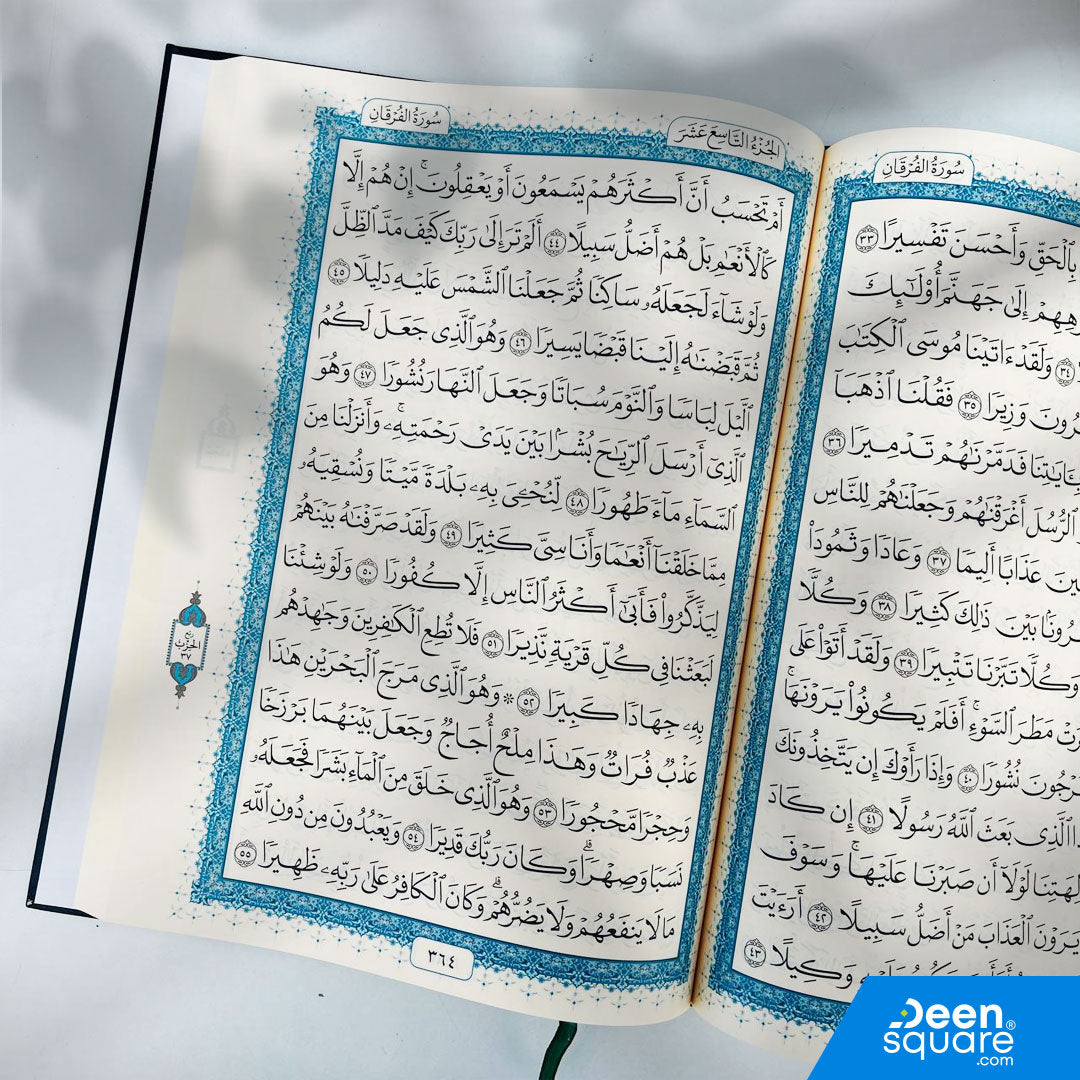 سُورَةُ الفُرْقَانِ
بِٱلْحَقِّ وَأَحْسَنَ تَفْسِيرًا ٣٣
إِلَىٰ جَهَنَّمَ أُوْلَٰٓئِكَ
٣٤ وَلَقَدْ ءَاتَيْنَا مُوسَى ٱلْكِتَٰبَ
وَزِيرًا ٣٥ فَقُلْنَا ٱذْهَبَآ
بِـَٔايَٰتِنَا فَدَمَّرْنَٰهُمْ تَدْمِيرًا ٣٦
ٱلرُّسُلَ أَغْرَقْنَٰهُمْ وَجَعَلْنَٰهُمْ لِلنَّاسِ
عَذَابًا أَلِيمًا ٣٧ وَعَادًا وَثَمُودَاْ
بَيْنَ ذَٰلِكَ كَثِيرًا ٣٨ وَكُلًّا
وَكُلًّا تَبَّرْنَا تَتْبِيرًا ٣٩ وَلَقَدْ أَتَوْاْ عَلَى
مَطَرَ ٱلسَّوْءِۚ أَفَلَمْ يَكُونُواْ يَرَوْنَهَاۚ
نُشُورًا ٤٠ وَإِذَا رَأَوْكَ إِن يَتَّخِذُونَكَ
ٱلَّذِى بَعَثَ ٱللَّهُ رَسُولًا ٤١ إِن كَادَ
لَوْلَآ أَن صَبَرْنَا عَلَيْهَاۚ وَسَوْفَ
يَرَوْنَ ٱلْعَذَابَ مَنْ أَضَلُّ سَبِيلًا ٤٢ أَرَءَيْتَ
وَكِيلًا ٤٣
الجُزْءُ التَّاسِعَ عَشَرَ
سُورَةُ الفُرْقَانِ
أَمْ تَحْسَبُ أَنَّ أَكْثَرَهُمْ يَسْمَعُونَ أَوْ يَعْقِلُونَۚ إِنْ هُمْ إِلَّا
كَٱلْأَنْعَٰمِ بَلْ هُمْ أَضَلُّ سَبِيلًا ٤٤ أَلَمْ تَرَ إِلَىٰ رَبِّكَ كَيْفَ مَدَّ ٱلظِّلَّ
وَلَوْ شَآءَ لَجَعَلَهُۥ سَاكِنًا ثُمَّ جَعَلْنَا ٱلشَّمْسَ عَلَيْهِ دَلِيلًا ٤٥
ثُمَّ قَبَضْنَٰهُ إِلَيْنَا قَبْضًا يَسِيرًا ٤٦ وَهُوَ ٱلَّذِى جَعَلَ لَكُمُ
ٱلَّيْلَ لِبَاسًا وَٱلنَّوْمَ سُبَاتًا وَجَعَلَ ٱلنَّهَارَ نُشُورًا ٤٧ وَهُوَ
ٱلَّذِىٓ أَرْسَلَ ٱلرِّيَٰحَ بُشْرًۢا بَيْنَ يَدَىْ رَحْمَتِهِۦۚ وَأَنزَلْنَا مِنَ
ٱلسَّمَآءِ مَآءً طَهُورًا ٤٨ لِّنُحْۧىَ بِهِۦ بَلْدَةً مَّيْتًا وَنُسْقِيَهُۥ
مِمَّا خَلَقْنَآ أَنْعَٰمًا وَأَنَاسِىَّ كَثِيرًا ٤٩ وَلَقَدْ صَرَّفْنَٰهُ بَيْنَهُمْ
لِيَذَّكَّرُواْ فَأَبَىٰٓ أَكْثَرُ ٱلنَّاسِ إِلَّا كُفُورًا ٥٠ وَلَوْ شِئْنَا
لَبَعَثْنَا فِى كُلِّ قَرْيَةٍ نَّذِيرًا ٥١ فَلَا تُطِعِ ٱلْكَٰفِرِينَ وَجَٰهِدْهُم
بِهِۦ جِهَادًا كَبِيرًا ٥٢ * وَهُوَ ٱلَّذِى مَرَجَ ٱلْبَحْرَيْنِ هَٰذَا
عَذْبٌ فُرَاتٌ وَهَٰذَا مِلْحٌ أُجَاجٌ وَجَعَلَ بَيْنَهُمَا بَرْزَخًا
وَحِجْرًا مَّحْجُورًا ٥٣ وَهُوَ ٱلَّذِى خَلَقَ مِنَ ٱلْمَآءِ بَشَرًا فَجَعَلَهُۥ
نَسَبًا وَصِهْرًاۗ وَكَانَ رَبُّكَ قَدِيرًا ٥٤ وَيَعْبُدُونَ مِن دُونِ ٱللَّهِ
مَا لَا يَنفَعُهُمْ وَلَا يَضُرُّهُمْۗ وَكَانَ ٱلْكَافِرُ عَلَىٰ رَبِّهِۦ ظَهِيرًا ٥٥
ربع
الحزب
٣٧
٣٦٤
Deen
square®
.com